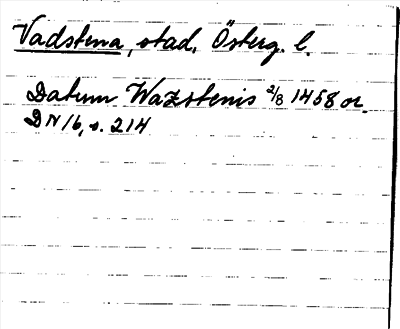 Vadstena, stad, Österg. l.
Datum Wazstenis 2/8 1458 or.
DN 16, s. 214